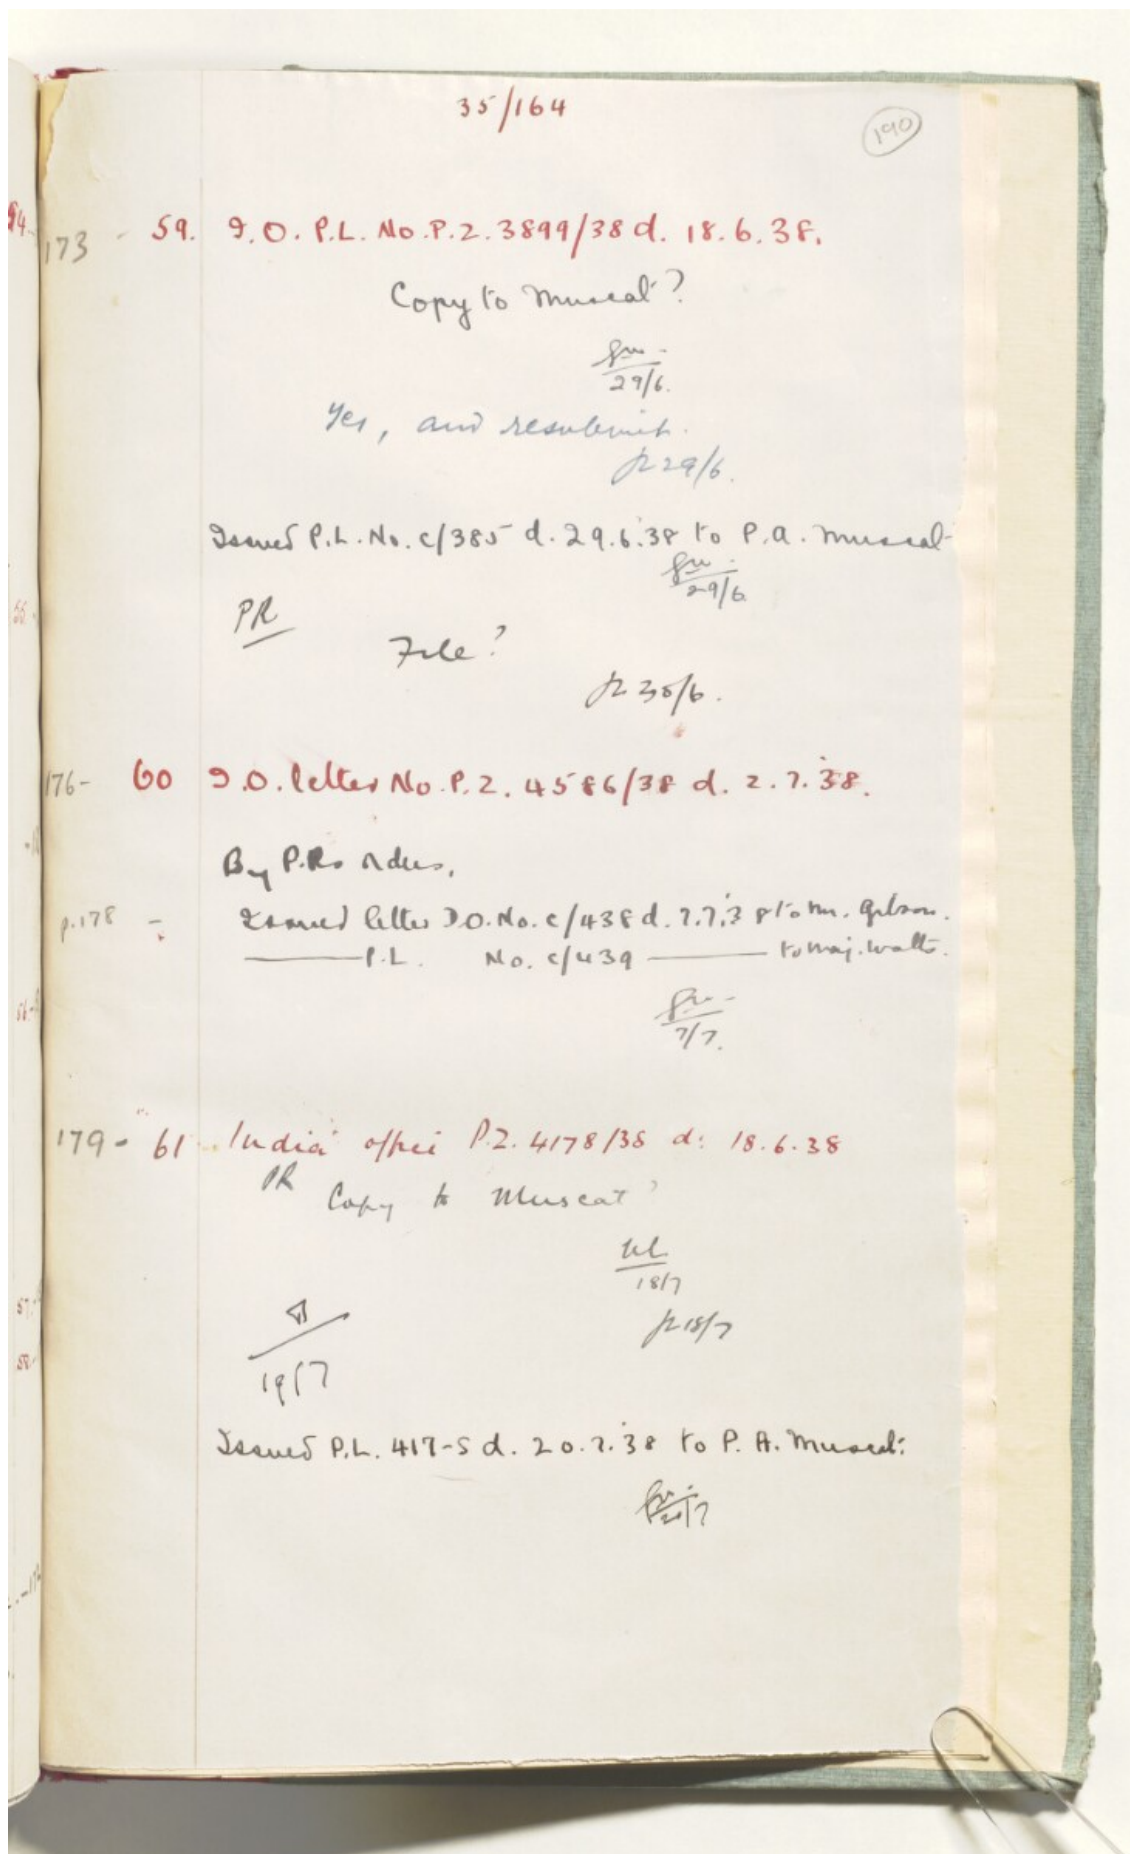 35/164
190
173 - 59. I.O. P.L. No. P.Z. 3899/38 d. 18.6.38.
Copy to Muscat?
29/6.
Yes, and resubmit.
29/6.
Issued P.L. No. C/385 d. 29.6.38 to P.A. Muscat
29/6.
PR
File?
30/6.
176- 60 I.O. letter No. P.Z. 4586/38 d. 2.7.38.
By P.R's orders,
p.178 - Issued letter D.O. No. C/438 d. 7.7.38 to Mr. Gibson.
P.L. No. C/439 to Maj. Watts.
7/7.
179- 61 India Office P.Z. 4178/38 d: 18.6.38
PR
Copy to Muscat?
18/7
18/7
19/7
Issued P.L. 417-S d. 20.7.38 to P.A. Muscat.
20/7